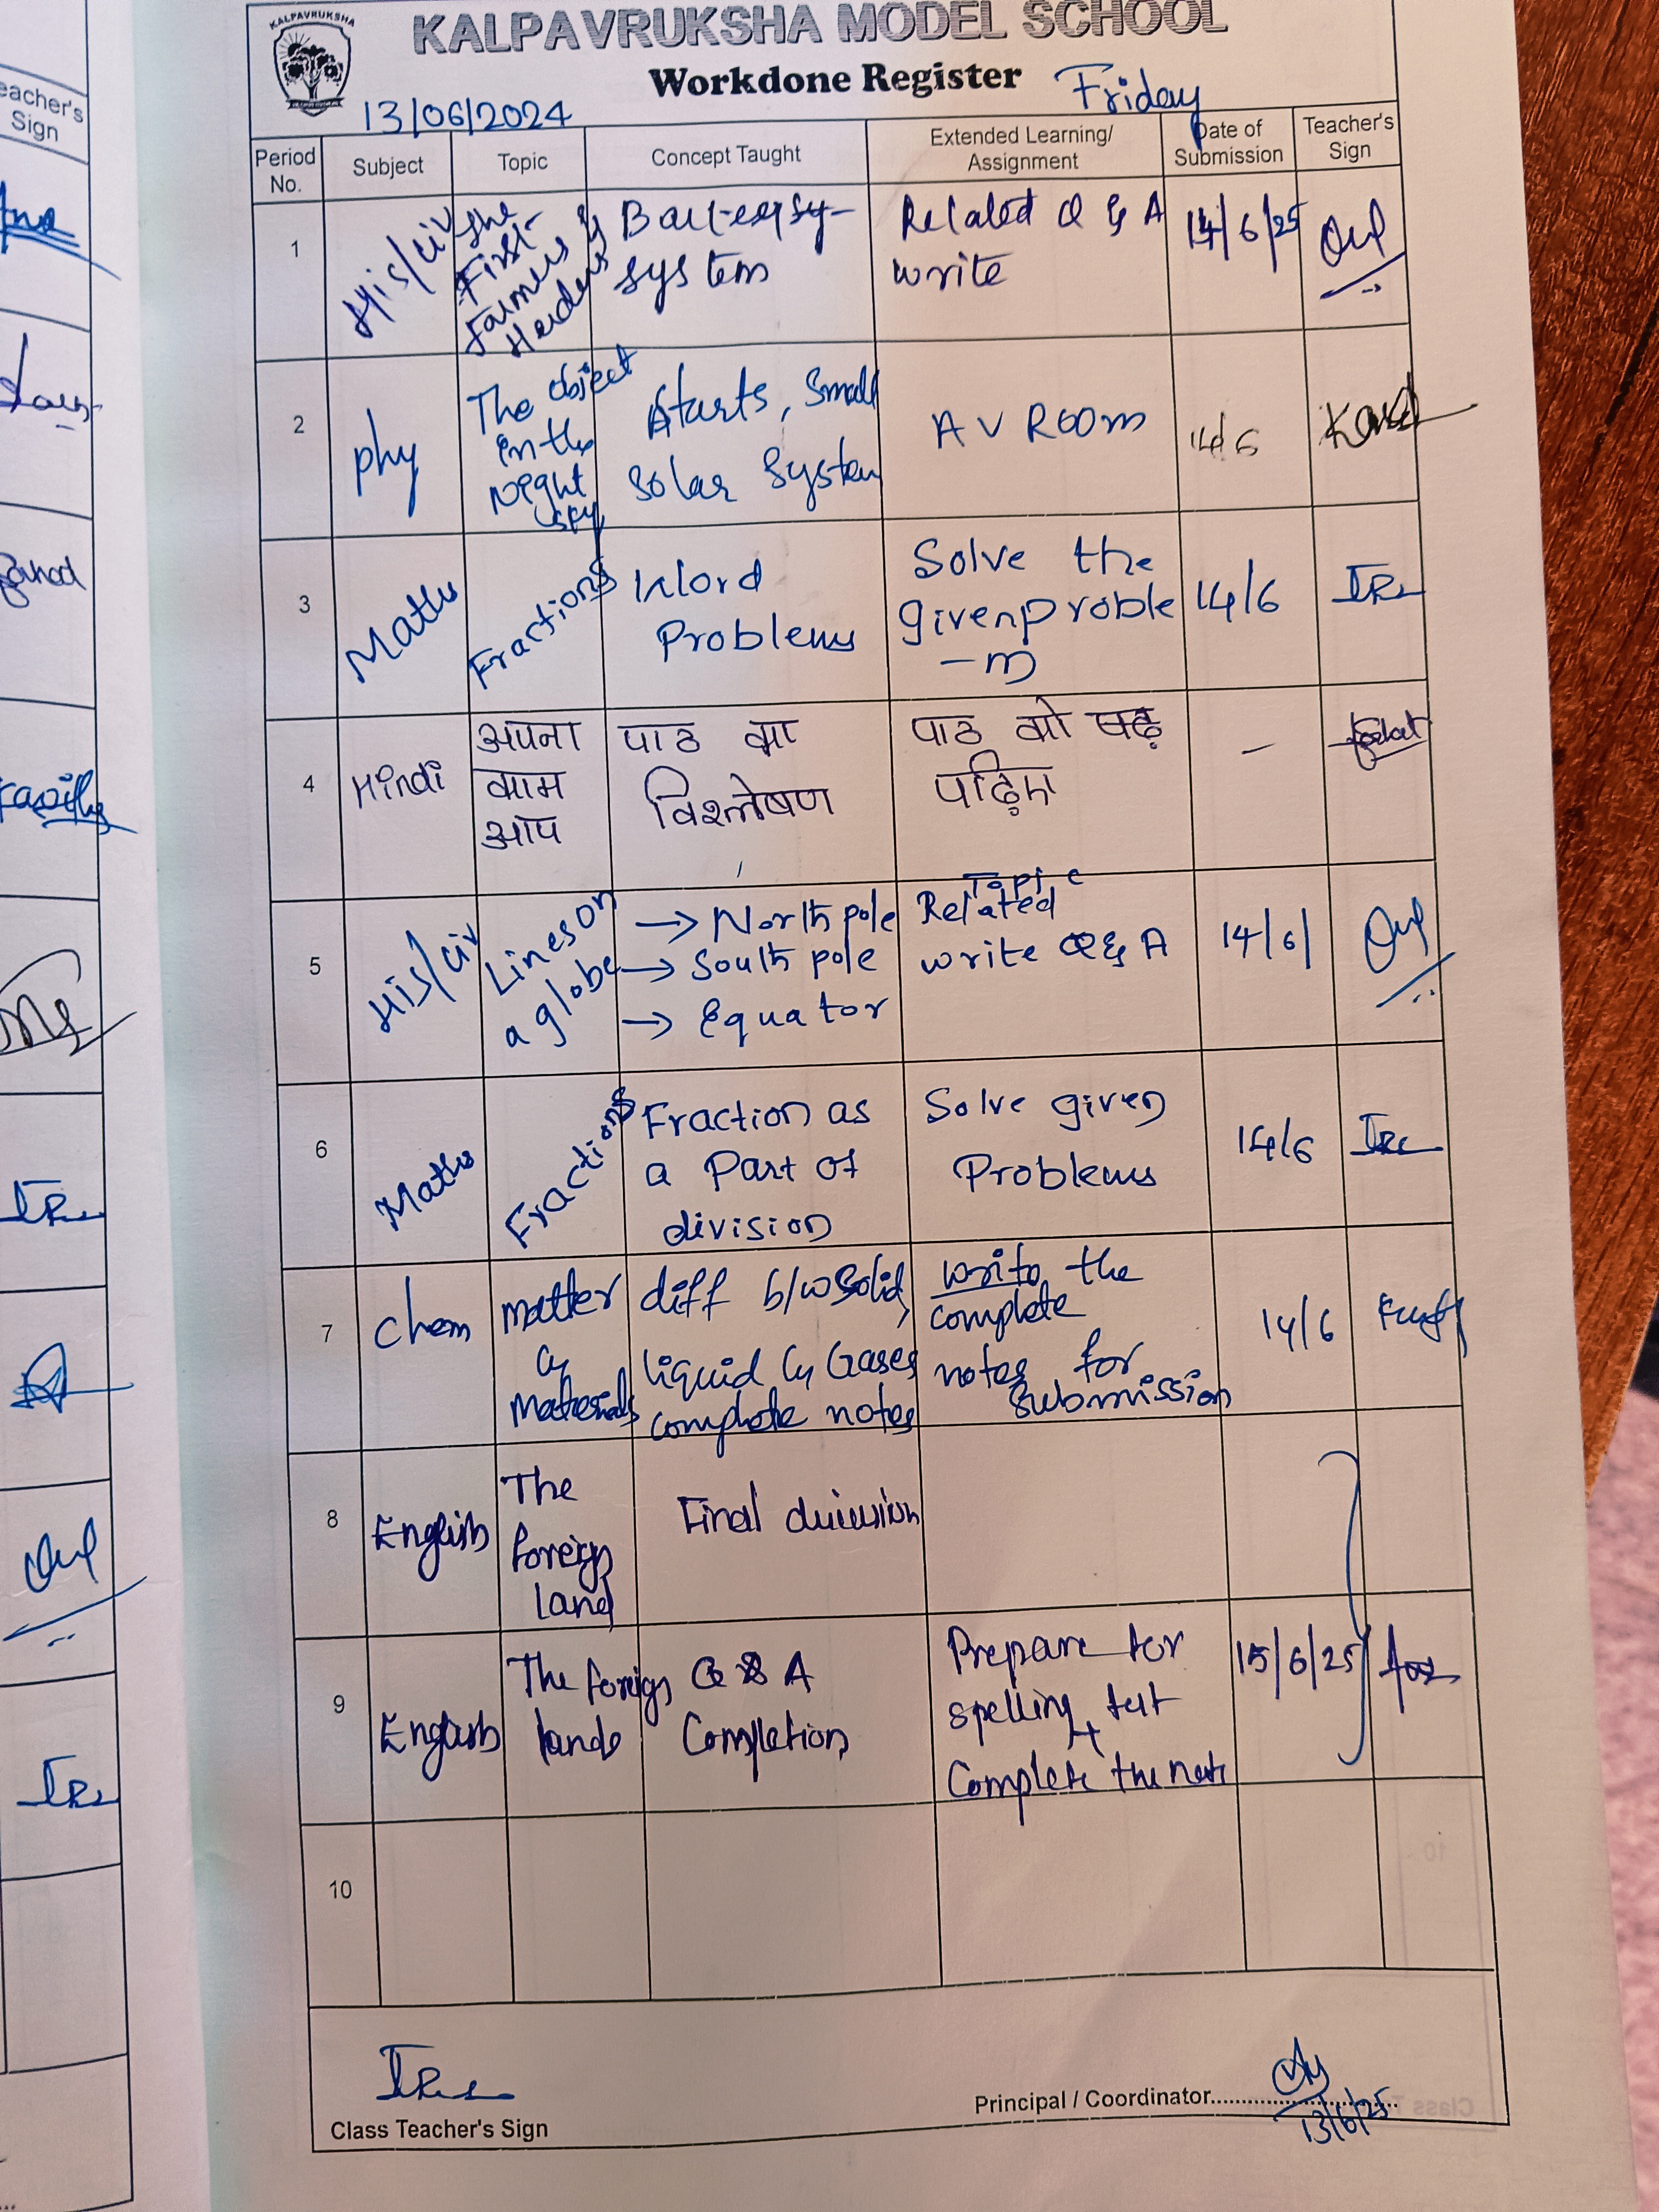 KALPAVRUKSHA
KALPAVRUKSHA MODEL SCHOOL
Workdone Register
13/06/2024
Friday
Period No.
Subject
Topic
Concept Taught
Extended Learning/ Assignment
Date of Submission
Teacher's Sign
1
His/civ
The
First
Farmers &
Herders
system
Related Q & A
write
14/6/25
2
phy
The object
in the
Night
sky
Starts, Small
Solar System
A V Room
14/6
3
Maths
Fractions
Word
Problems
Solve the
given proble
-m
14/6
4
Hindi
अपना
काम
आप
पाठ का
विश्लेषण
पाठ को पढ़
पढ़िए
-
5
His/civ
Lines on
a globe
→ North pole
→ South pole
→ Equator
Topic
Related
write Q & A
14/6/
6
Maths
Fractions
Fraction as
a Part of
division
Solve given
Problems
14/6
7
chem
matter
&
Materials
diff b/w Solid,
liquid & Gases
complete notes
write the
complete
notes for
submission
14/6
8
English
The
foreign
land
Final
9
English
The foreign
lands
Q & A
Completion
Prepare for
spelling test
+
Complete the
15/6/25
10
Class Teacher's Sign
Principal / Coordinator
13/6/25
eacher's
Sign